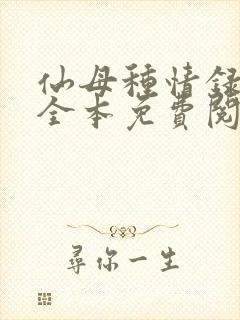 仙母種情錄
全本免費閱
尋你一生